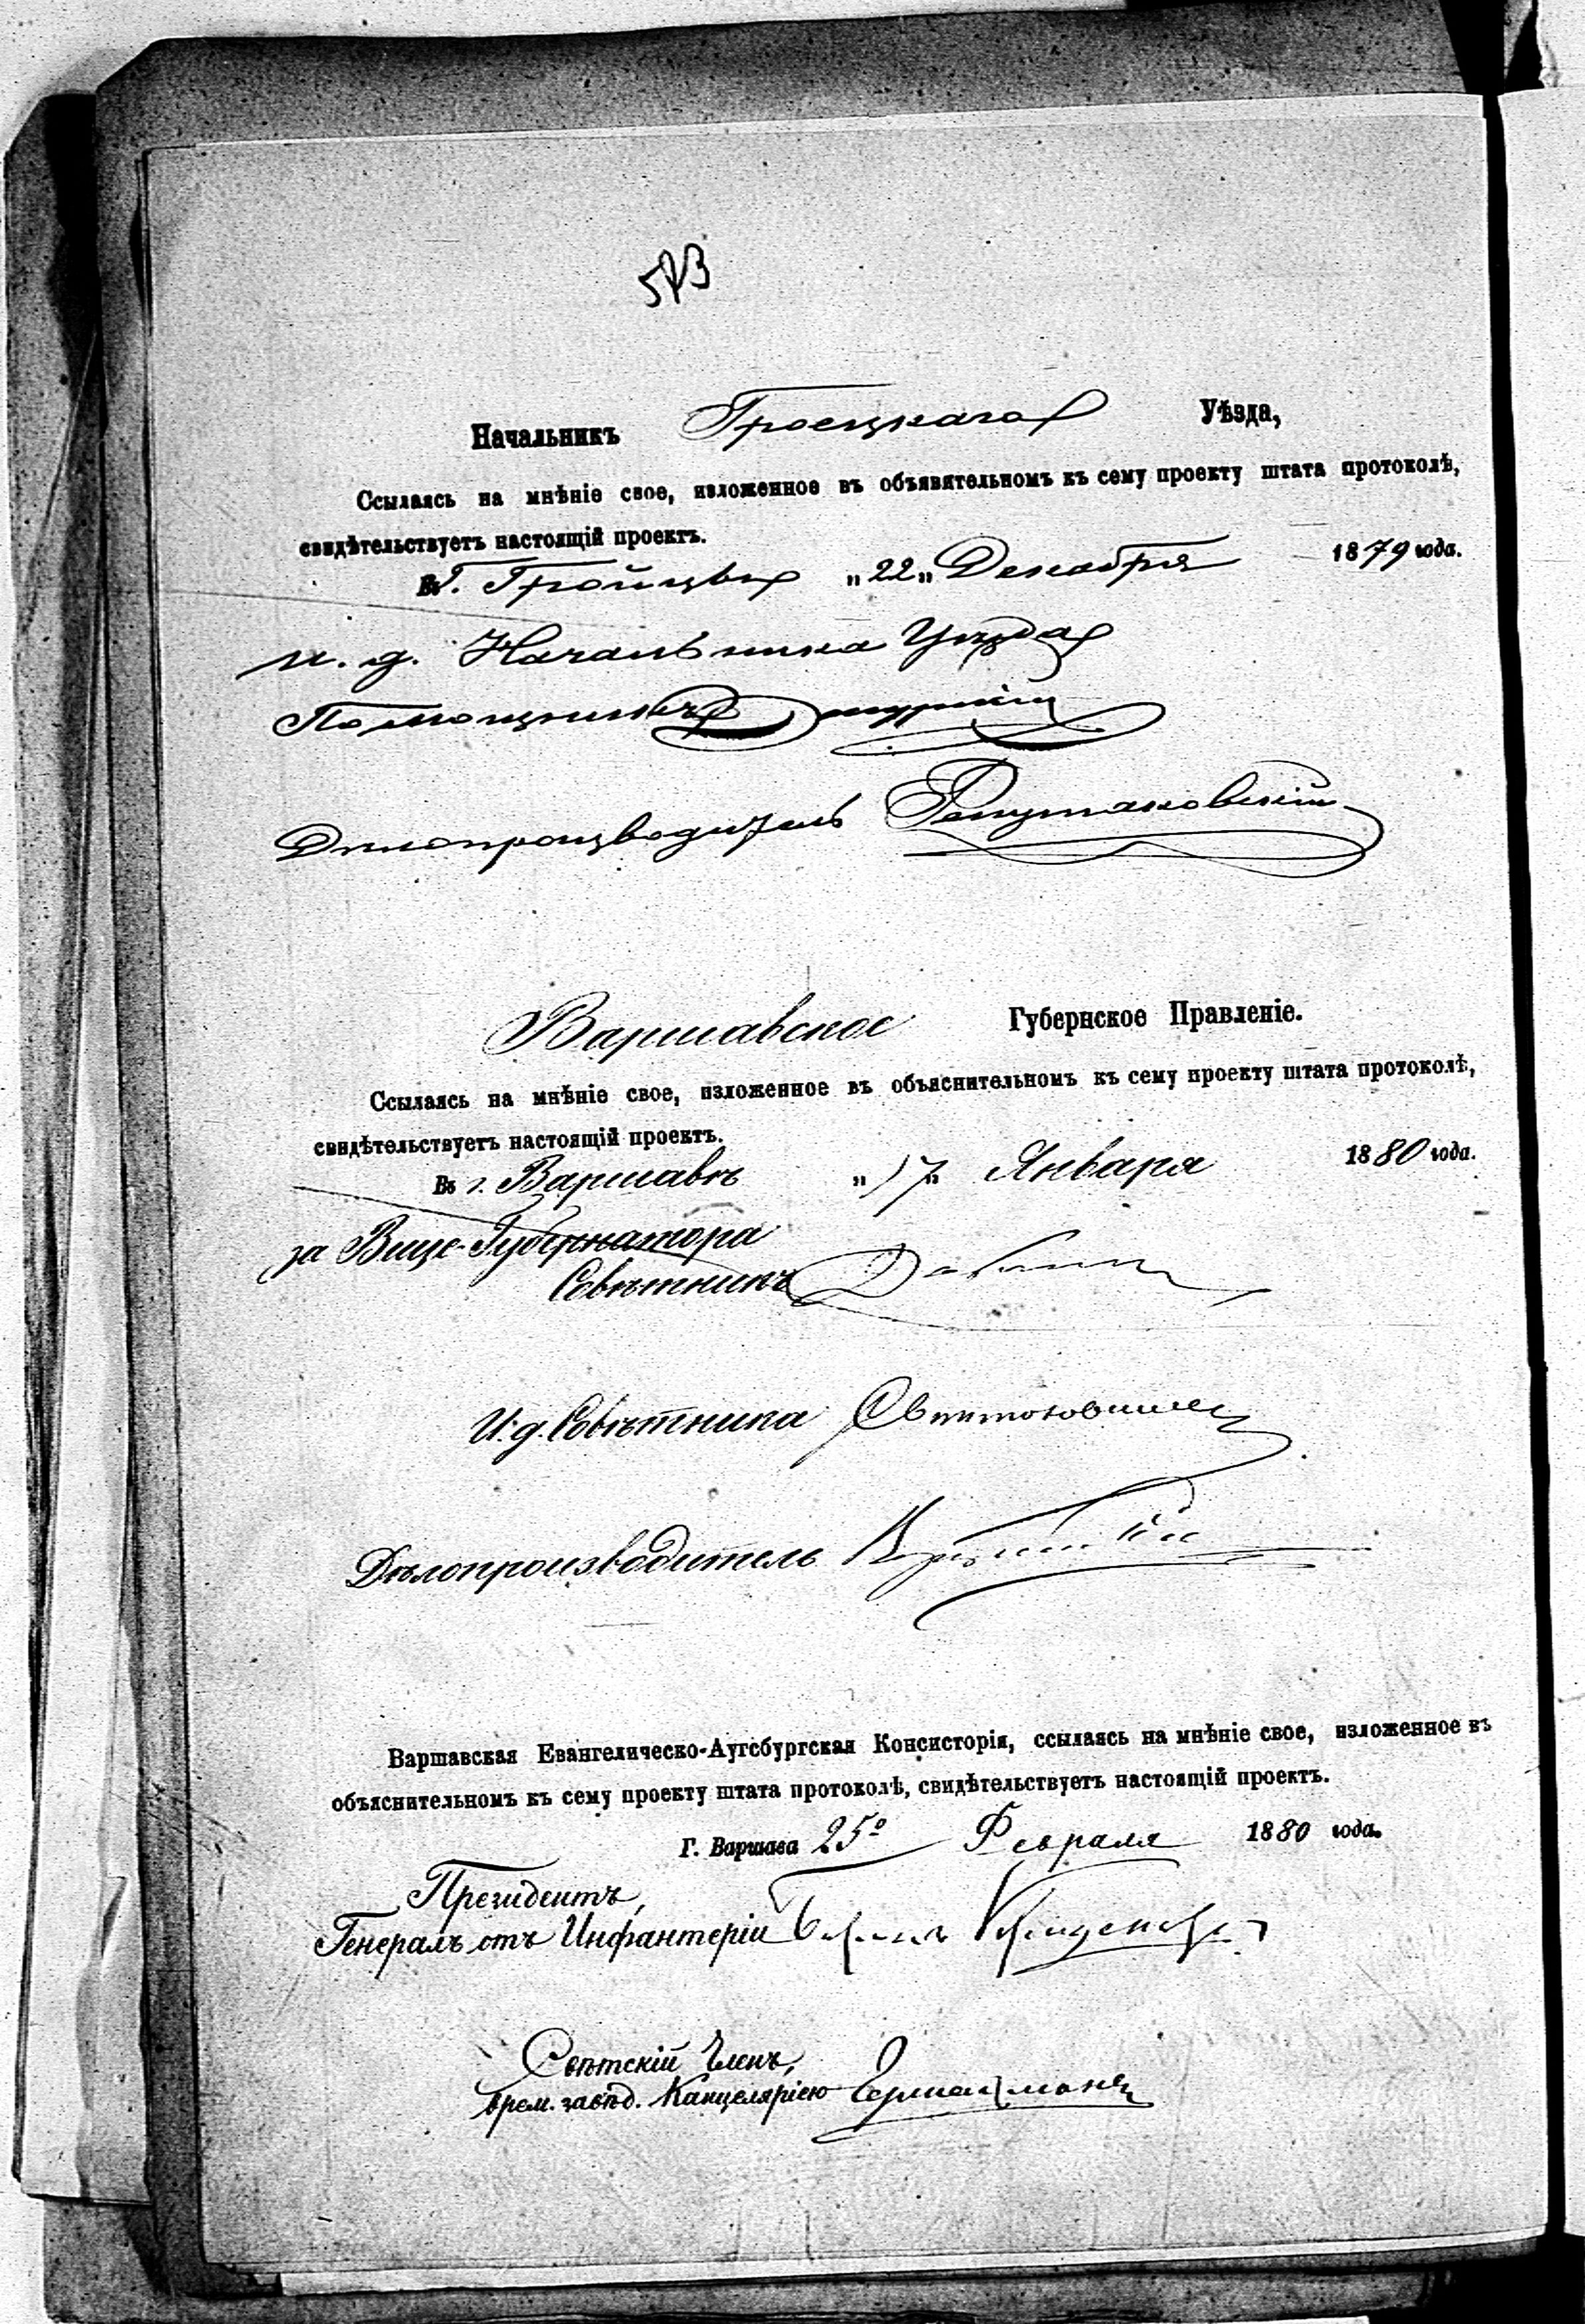 573
Начальникъ Гроецкаго Уѣзда,
Ссылаясь на мнѣніе свое, изложенное въ объявительномъ къ сему проекту штата протоколѣ,
свидѣтельствуетъ настоящій проектъ.
Въ г. Гройцѣ „22„ Декабря 1879 года.
И. д. Начальника Уѣзда
Помощникъ
Дѣлопроизводитель
Варшавское Губернское Правленіе.
Ссылаясь на мнѣніе свое, изложенное въ объяснительномъ къ сему проекту штата протоколѣ,
свидѣтельствуетъ настоящій проектъ.
Въ г. Варшавѣ „17„ Января 1880 года.
за Вице-Губернатора
Совѣтникъ
И. д. Совѣтника
Дѣлопроизводитель
Варшавская Евангелическо-Аугсбургская Консисторія, ссылаясь на мнѣніе свое, изложенное въ
объяснительномъ къ сему проекту штата протоколѣ, свидѣтельствуетъ настоящій проектъ.
Г. Варшава 25º Февраля 1880 года.
Президентъ,
Генералъ отъ Инфантеріи Баронъ
Свѣтскій Членъ,
врем. завѣд. Канцеляріею